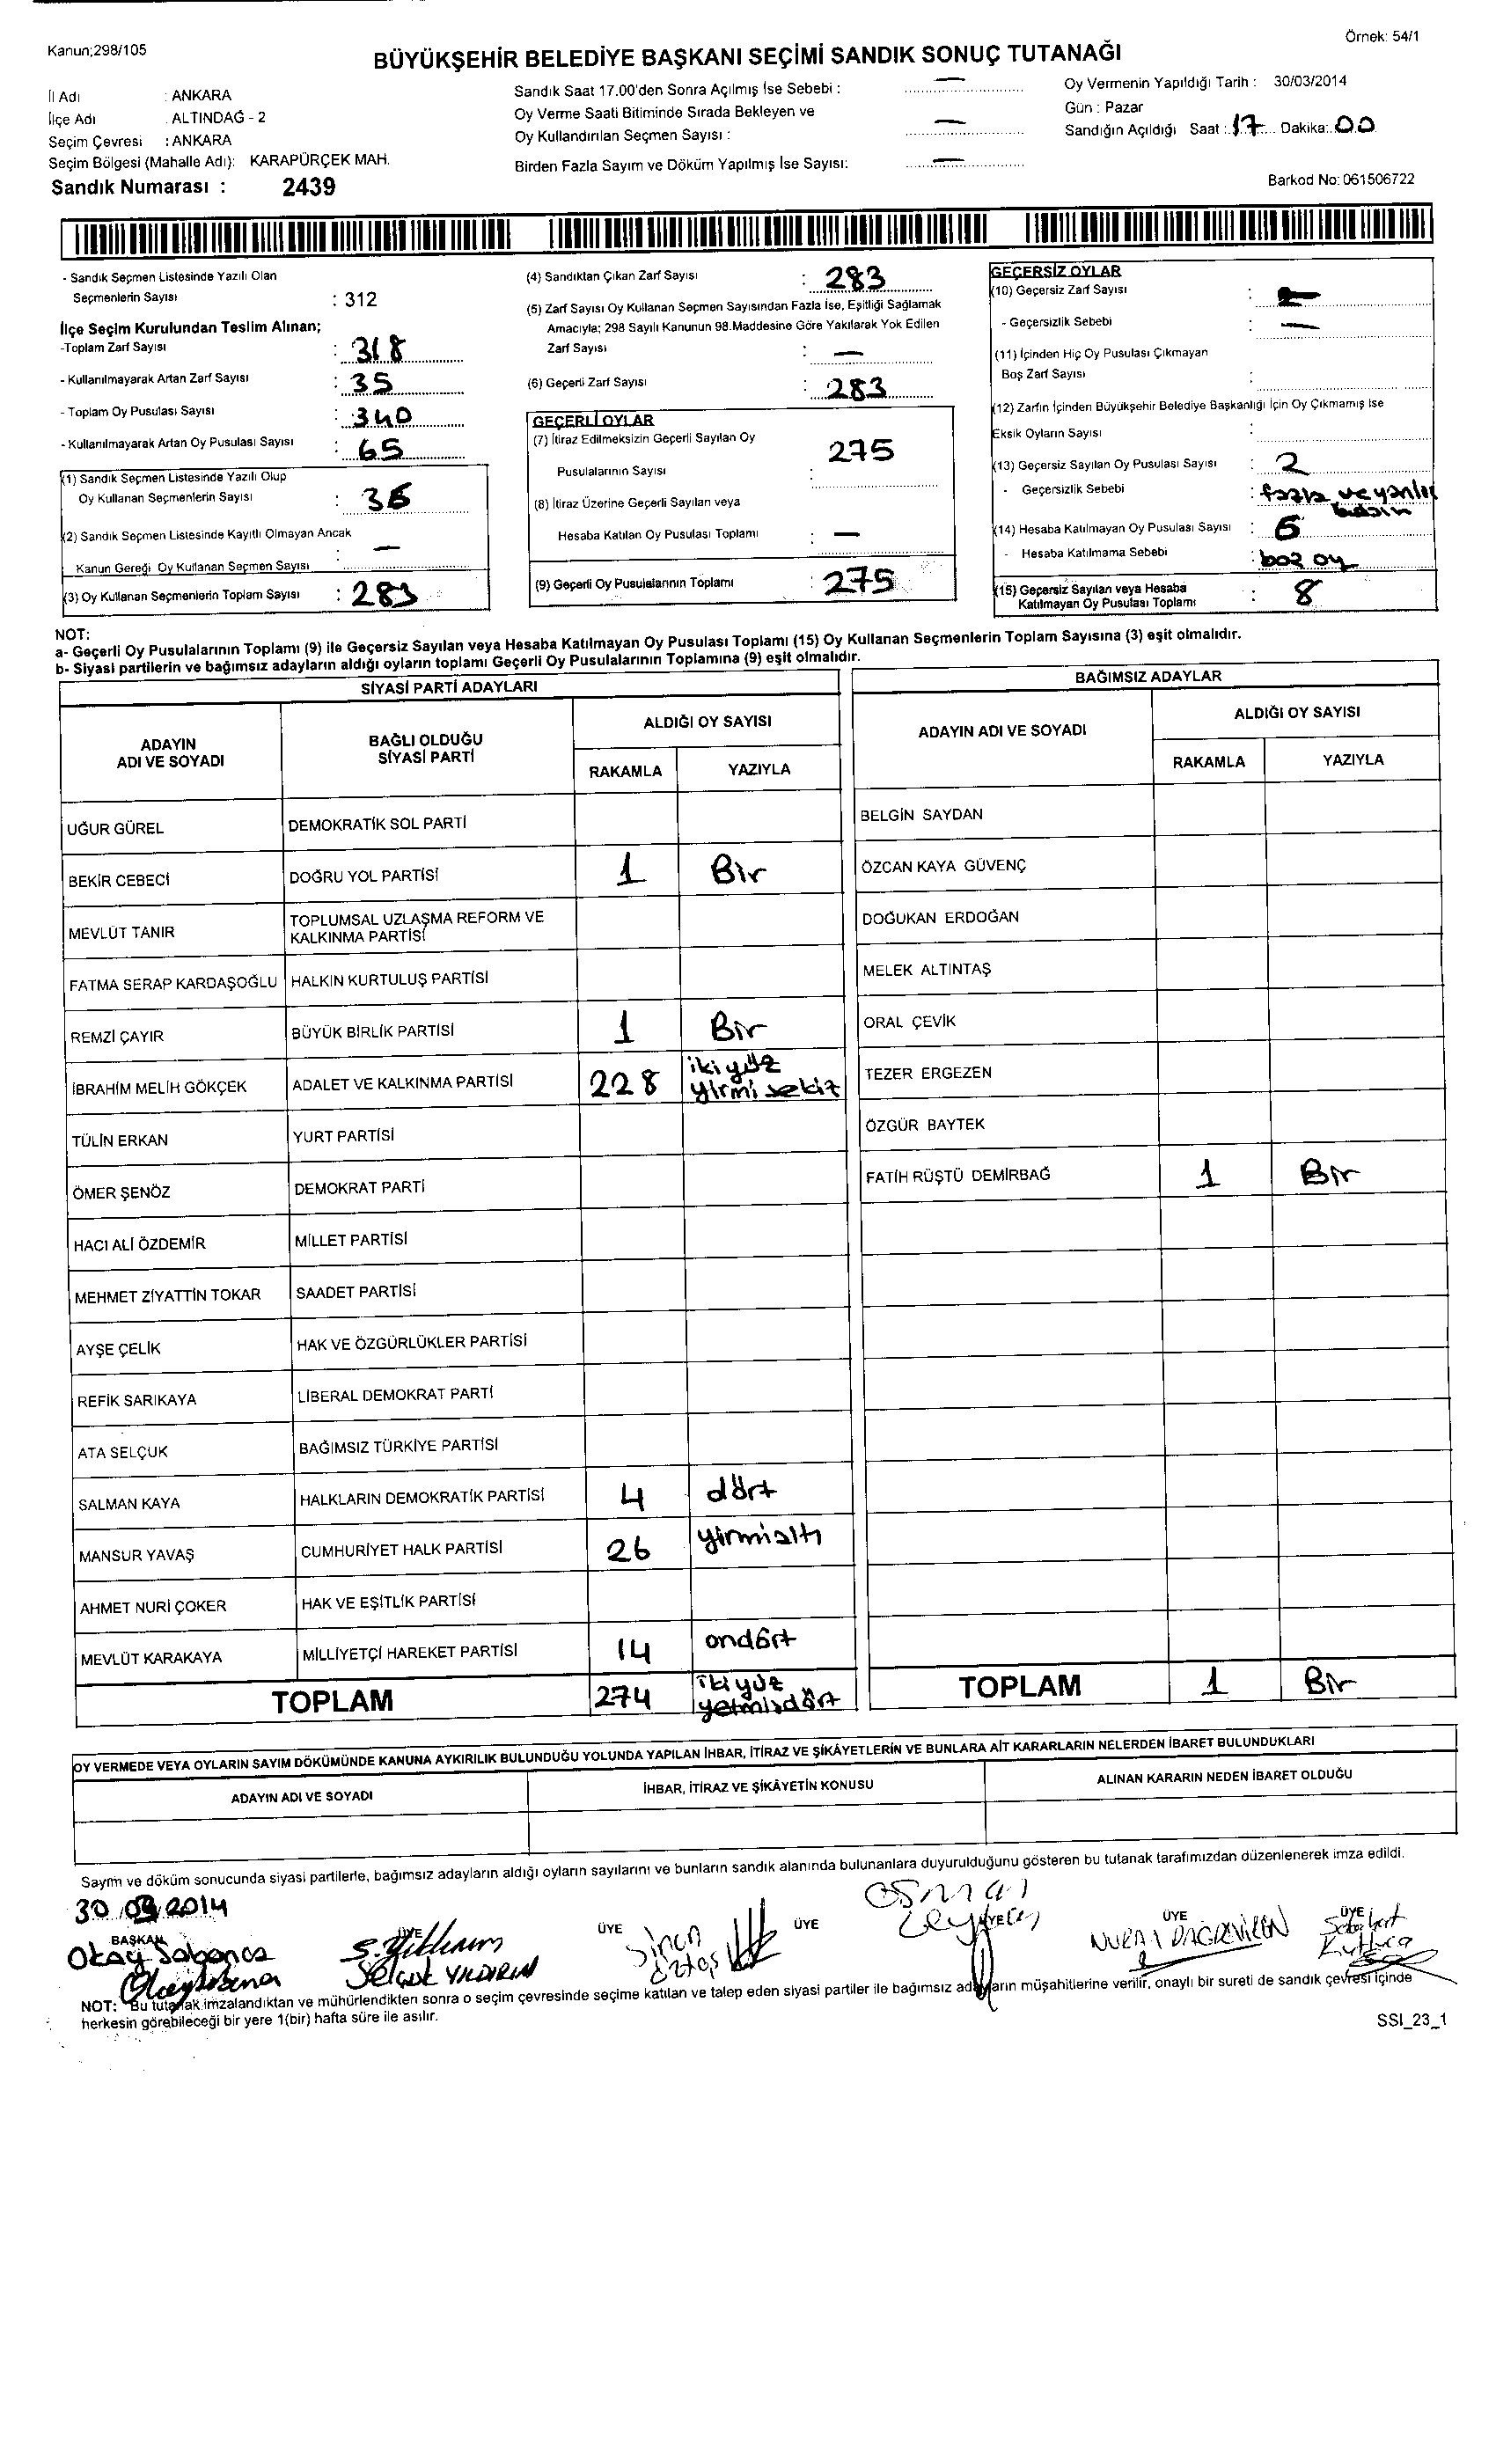 Kanun;298/105
Örnek: 54/1
BÜYÜKŞEHİR BELEDİYE BAŞKANI SEÇİMİ SANDIK SONUÇ TUTANAĞI
İl Adı : ANKARA
İlçe Adı : ALTINDAĞ - 2
Seçim Çevresi : ANKARA
Seçim Bölgesi (Mahalle Adı): KARAPÜRÇEK MAH.
Sandık Numarası : 2439
Sandık Saat 17.00'den Sonra Açılmış İse Sebebi : —
Oy Verme Saati Bitiminde Sırada Bekleyen ve
Oy Kullandırılan Seçmen Sayısı : —
Birden Fazla Sayım ve Döküm Yapılmış İse Sayısı: —
Oy Vermenin Yapıldığı Tarih : 30/03/2014
Gün : Pazar
Sandığın Açıldığı Saat : 17 Dakika: 00
Barkod No: 061506722
- Sandık Seçmen Listesinde Yazılı Olan
Seçmenlerin Sayısı : 312
İlçe Seçim Kurulundan Teslim Alınan;
-Toplam Zarf Sayısı : 318
- Kullanılmayarak Artan Zarf Sayısı : 35
- Toplam Oy Pusulası Sayısı : 340
- Kullanılmayarak Artan Oy Pusulası Sayısı : 65
(1) Sandık Seçmen Listesinde Yazılı Olup
Oy Kullanan Seçmenlerin Sayısı :
(2) Sandık Seçmen Listesinde Kayıtlı Olmayan Ancak
Kanun Gereği Oy Kullanan Seçmen Sayısı : —
(3) Oy Kullanan Seçmenlerin Toplam Sayısı : 283
(4) Sandıktan Çıkan Zarf Sayısı : 283
(5) Zarf Sayısı Oy Kullanan Seçmen Sayısından Fazla İse, Eşitliği Sağlamak
Amacıyla; 298 Sayılı Kanunun 98.Maddesine Göre Yakılarak Yok Edilen
Zarf Sayısı : —
(6) Geçerli Zarf Sayısı : 283
GEÇERLİ OYLAR
(7) İtiraz Edilmeksizin Geçerli Sayılan Oy
Pusulalarının Sayısı : 275
(8) İtiraz Üzerine Geçerli Sayılan veya
Hesaba Katılan Oy Pusulası Toplamı : —
(9) Geçerli Oy Pusulalarının Toplamı : 275
GEÇERSİZ OYLAR
(10) Geçersiz Zarf Sayısı : —
- Geçersizlik Sebebi : —
(11) İçinden Hiç Oy Pusulası Çıkmayan
Boş Zarf Sayısı :
(12) Zarfın İçinden Büyükşehir Belediye Başkanlığı İçin Oy Çıkmamış İse
Eksik Oyların Sayısı :
(13) Geçersiz Sayılan Oy Pusulası Sayısı : 2
- Geçersizlik Sebebi : fazla ve yanlış
basın
(14) Hesaba Katılmayan Oy Pusulası Sayısı : 6
- Hesaba Katılmama Sebebi : boz oy
(15) Geçersiz Sayılan veya Hesaba
Katılmayan Oy Pusulası Toplamı : 8
NOT:
a- Geçerli Oy Pusulalarının Toplamı (9) ile Geçersiz Sayılan veya Hesaba Katılmayan Oy Pusulası Toplamı (15) Oy Kullanan Seçmenlerin Toplam Sayısına (3) eşit olmalıdır.
b- Siyasi partilerin ve bağımsız adayların aldığı oyların toplamı Geçerli Oy Pusulalarının Toplamına (9) eşit olmalıdır.
SİYASİ PARTİ ADAYLARI
ADAYIN ADI VE SOYADI BAĞLI OLDUĞU SİYASİ PARTİ ALDIĞI OY SAYISI
RAKAMLA YAZIYLA
UĞUR GÜREL DEMOKRATİK SOL PARTİ
BEKİR CEBECİ DOĞRU YOL PARTİSİ 1 Bir
MEVLÜT TANIR TOPLUMSAL UZLAŞMA REFORM VE KALKINMA PARTİSİ
FATMA SERAP KARDAŞOĞLU HALKIN KURTULUŞ PARTİSİ
REMZİ ÇAYIR BÜYÜK BİRLİK PARTİSİ 1 Bir
İBRAHİM MELİH GÖKÇEK ADALET VE KALKINMA PARTİSİ 228 ikiyüz yirmi sekiz
TÜLİN ERKAN YURT PARTİSİ
ÖMER ŞENÖZ DEMOKRAT PARTİ
HACI ALİ ÖZDEMİR MİLLET PARTİSİ
MEHMET ZİYATTİN TOKAR SAADET PARTİSİ
AYŞE ÇELİK HAK VE ÖZGÜRLÜKLER PARTİSİ
REFİK SARIKAYA LİBERAL DEMOKRAT PARTİ
ATA SELÇUK BAĞIMSIZ TÜRKİYE PARTİSİ
SALMAN KAYA HALKLARIN DEMOKRATİK PARTİSİ 4 dört
MANSUR YAVAŞ CUMHURİYET HALK PARTİSİ 26 yirmialtı
AHMET NURİ ÇOKER HAK VE EŞİTLİK PARTİSİ
MEVLÜT KARAKAYA MİLLİYETÇİ HAREKET PARTİSİ 14 ondört
TOPLAM 274 ikiyüz yetmişdört
BAĞIMSIZ ADAYLAR
ADAYIN ADI VE SOYADI ALDIĞI OY SAYISI
RAKAMLA YAZIYLA
BELGİN SAYDAN
ÖZCAN KAYA GÜVENÇ
DOĞUKAN ERDOĞAN
MELEK ALTINTAŞ
ORAL ÇEVİK
TEZER ERGEZEN
ÖZGÜR BAYTEK
FATİH RÜŞTÜ DEMİRBAĞ 1 Bir
TOPLAM 1 Bir
OY VERMEDE VEYA OYLARIN SAYIM DÖKÜMÜNDE KANUNA AYKIRILIK BULUNDUĞU YOLUNDA YAPILAN İHBAR, İTİRAZ VE ŞİKÂYETLERİN VE BUNLARA AİT KARARLARIN NELERDEN İBARET BULUNDUKLARI
ADAYIN ADI VE SOYADI İHBAR, İTİRAZ VE ŞİKÂYETİN KONUSU ALINAN KARARIN NEDEN İBARET OLDUĞU
Sayım ve döküm sonucunda siyasi partilerle, bağımsız adayların aldığı oyların sayılarını ve bunların sandık alanında bulunanlara duyurulduğunu gösteren bu tutanak tarafımızdan düzenlenerek imza edildi.
30 /03/ 2014
BAŞKAN ÜYE ÜYE ÜYE ÜYE ÜYE ÜYE
Okay Sabanca
S. Yıldırım
SELÇUK YILDIRIM
Sinan
OSMAN
NURAY
NOT: Bu tutanak imzalandıktan ve mühürlendikten sonra o seçim çevresinde seçime katılan ve talep eden siyasi partiler ile bağımsız adayların müşahitlerine verilir, onaylı bir sureti de sandık çevresi içinde
herkesin görebileceği bir yere 1(bir) hafta süre ile asılır.
SSI_23_1